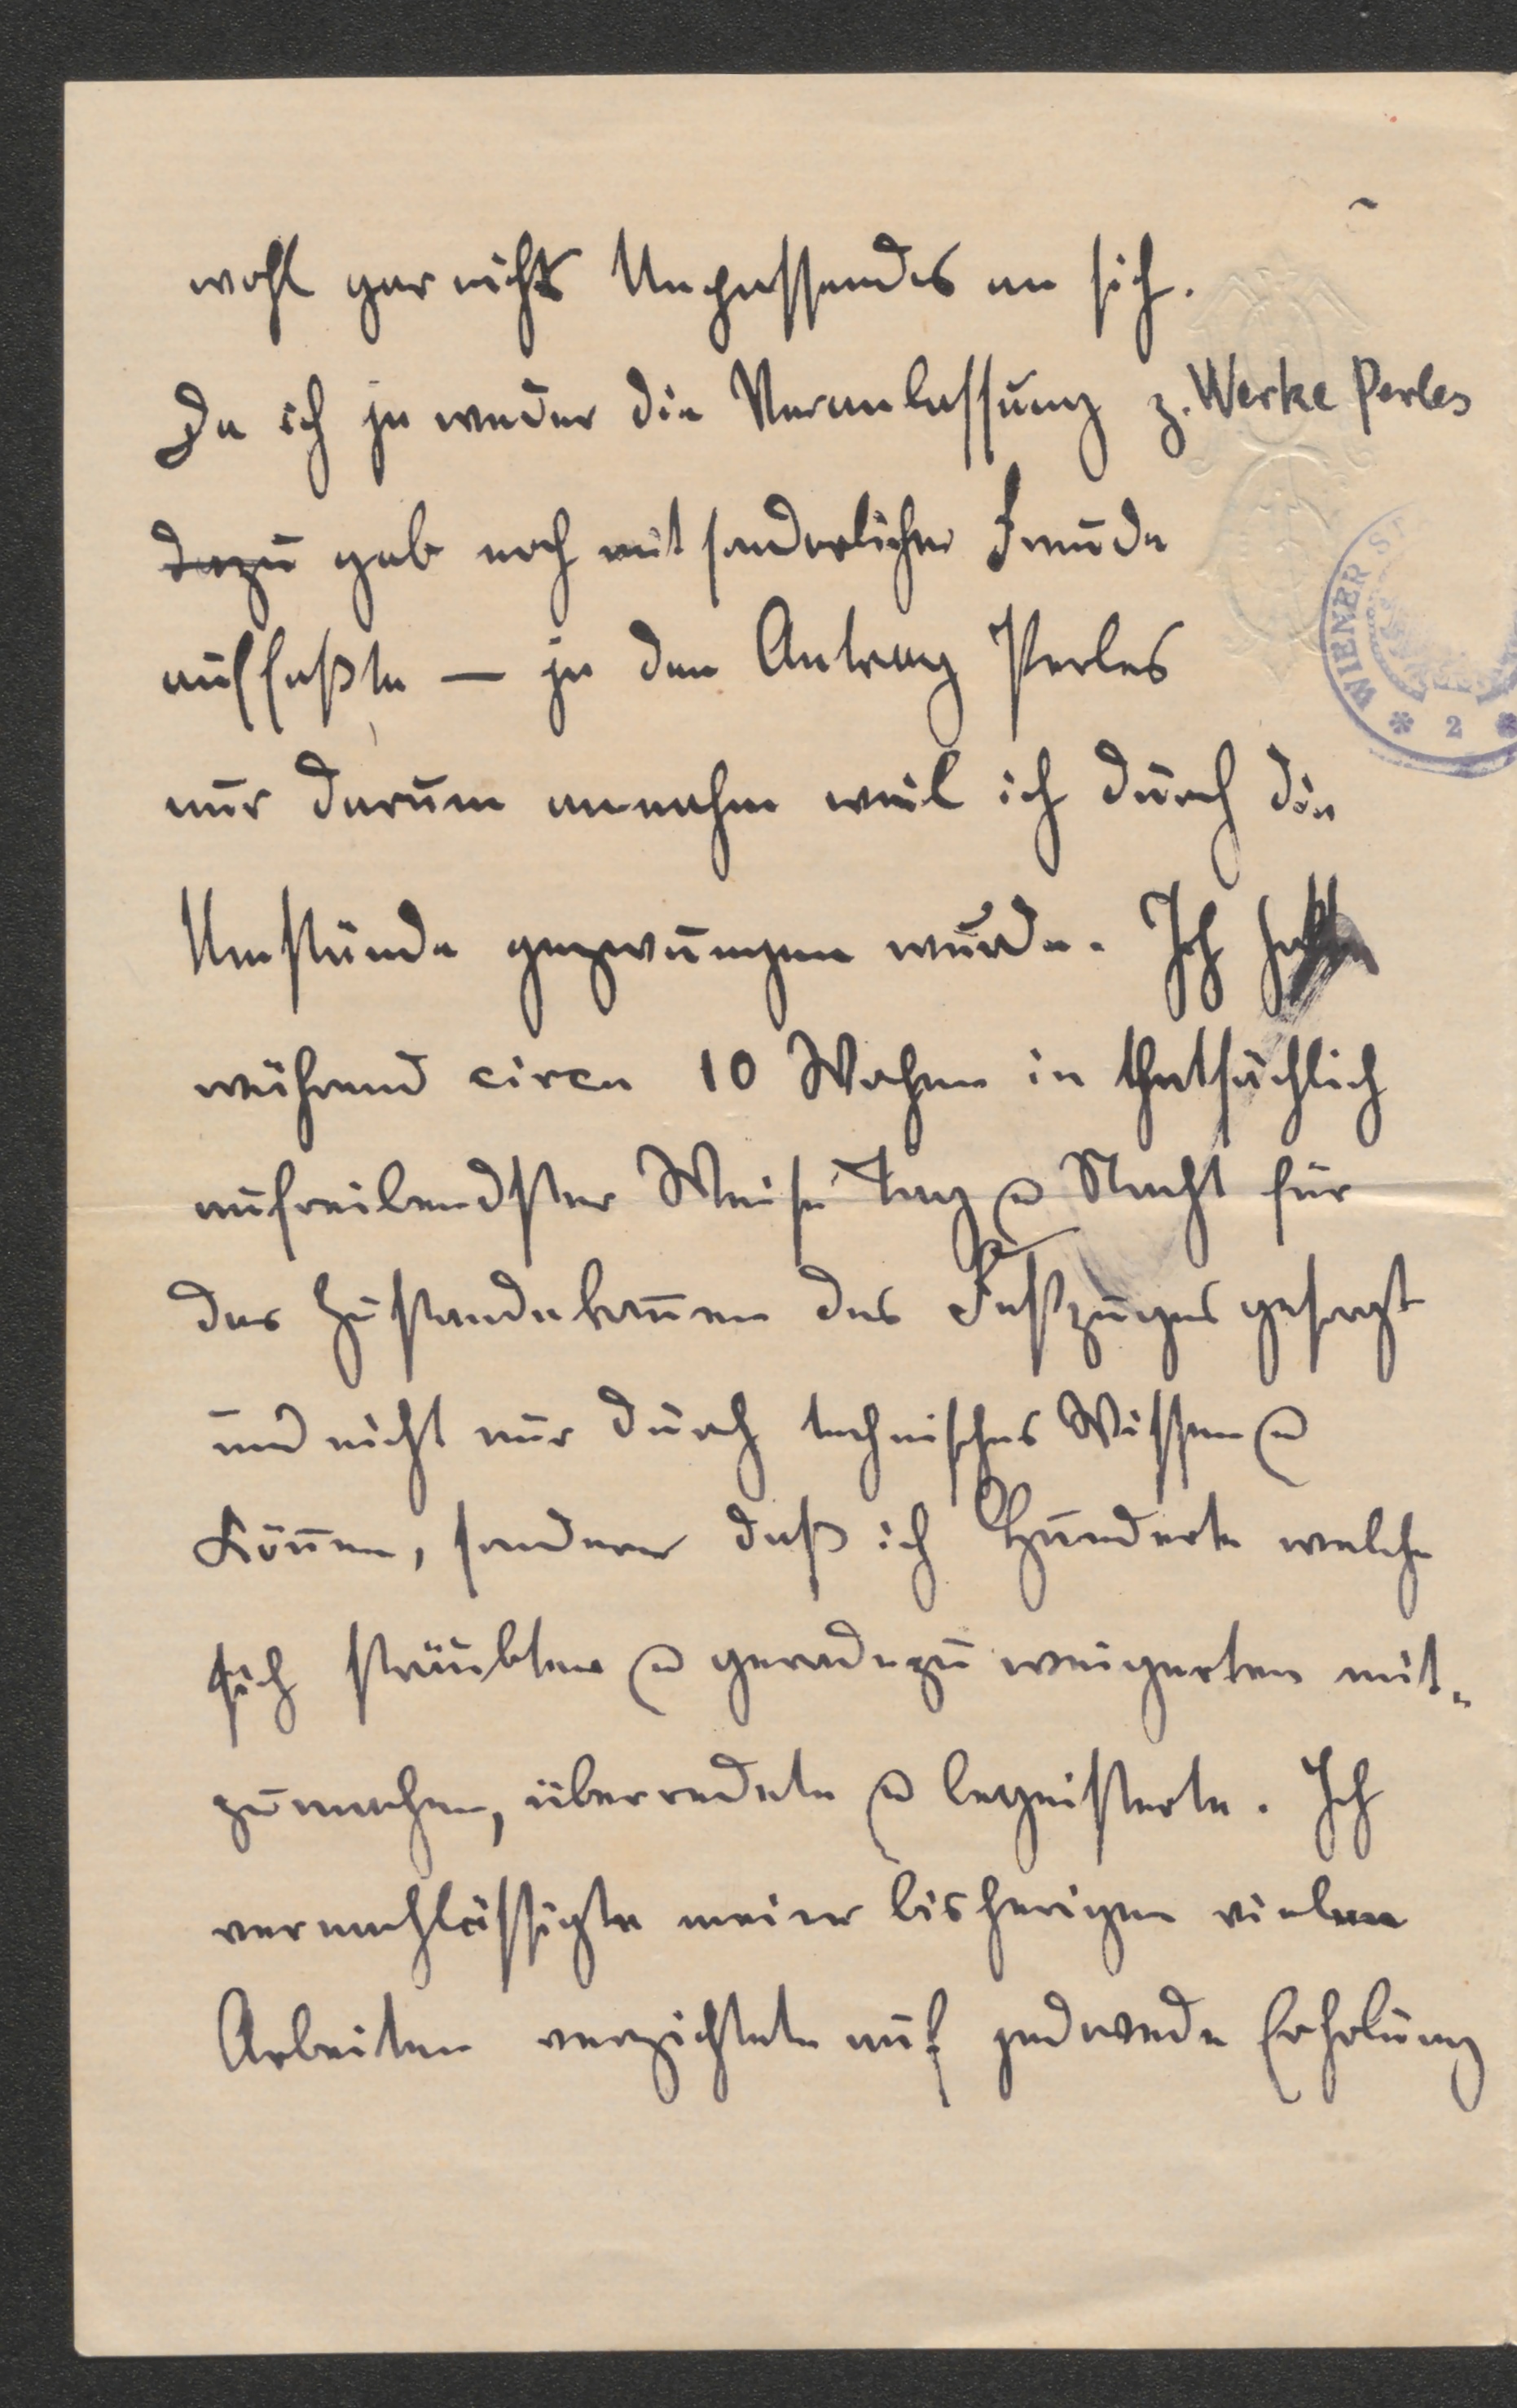 wohl gar nichts Unpassendes an sich.
Da ich ja weder die Veranlassung z. Werke Perles
dazu gab noch mit sonderlicher Freude
auffaßte — ja den Antrag Perles
nur darum annahm weil ich durch die
Umstände gezwungen wurde. Ich
während circa 10 Wochen in thatsächlich
aufreibendster Weise Tag u Nacht für
das Zustandekom̄en des Festzuges gesorgt
und nicht nur durch technisches Wissen u
Kön̄en, sondern daß ich Hunderte welche
sich sträubten u geradezu weigerten mit-
zumachen, überredete u begeisterte. Ich
vernachlässigte meine bisherigen vielen
Arbeiten verzichtete auf jedwede Erholung
WIENER ST
* 2 *